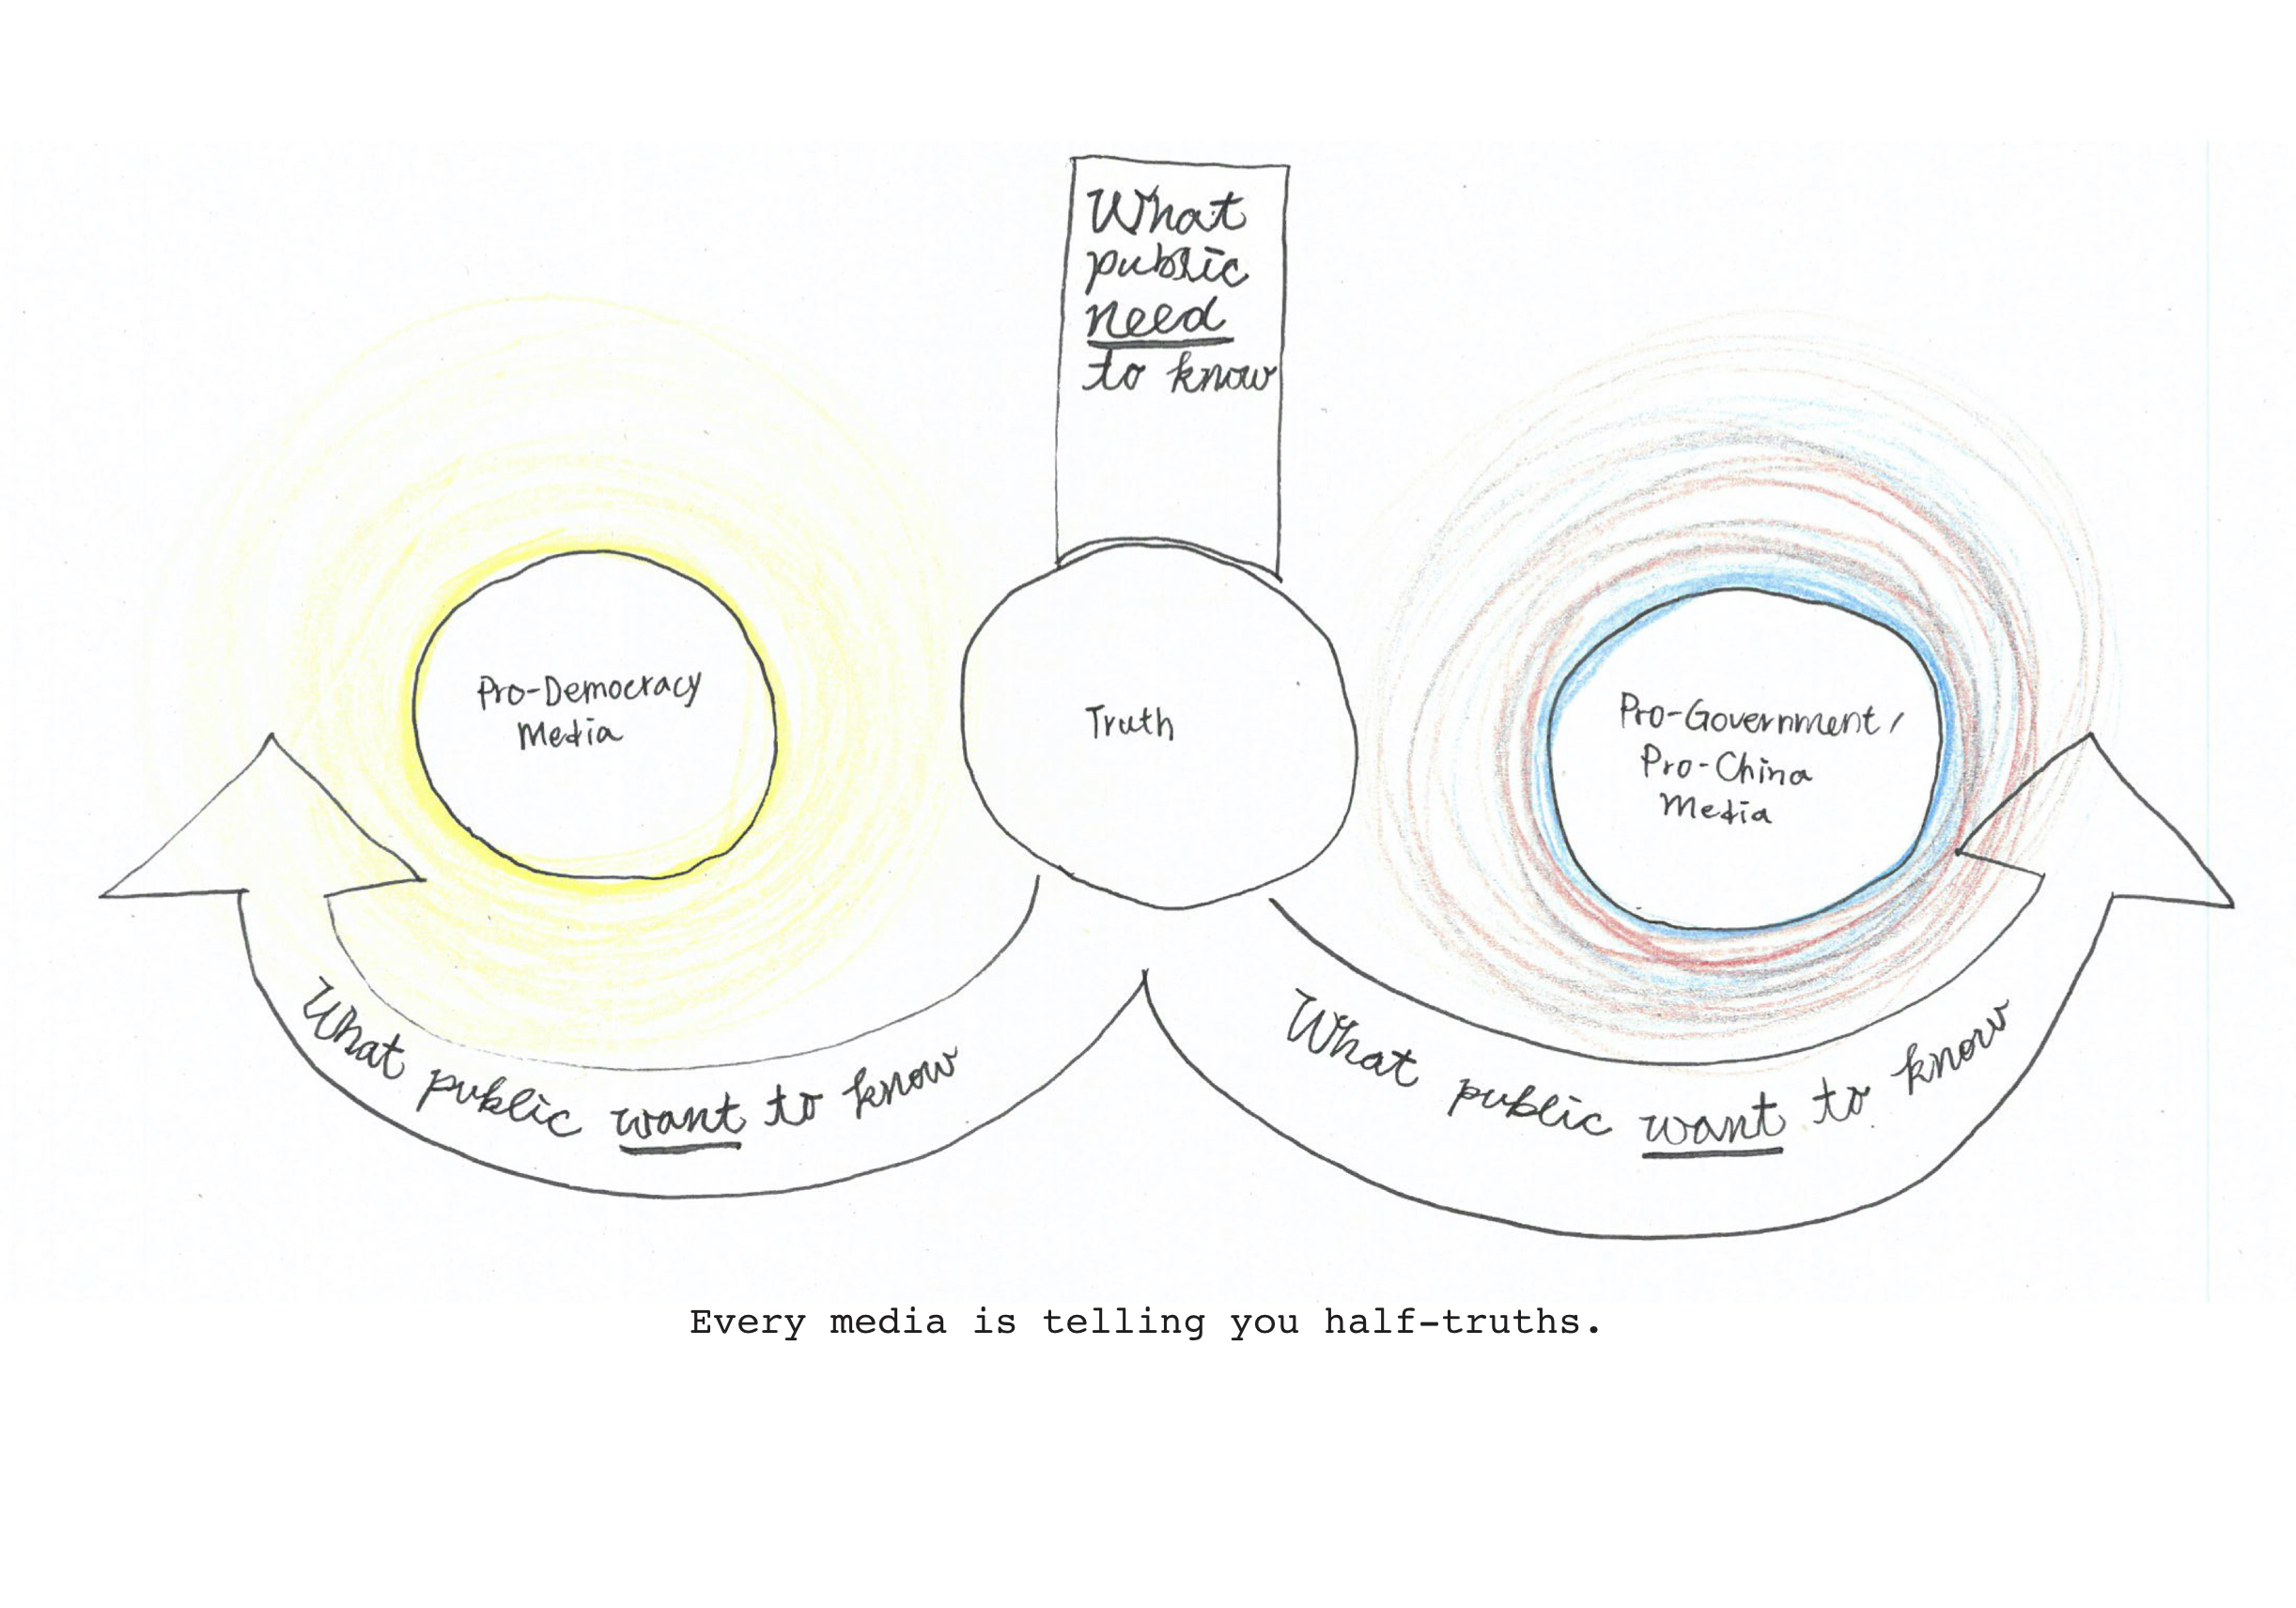 What
public
need
to know
Pro-Democracy
Media
Truth
Pro-Government/
Pro-China
Media
What public want to know
What public want to know
Every media is telling you half-truths.